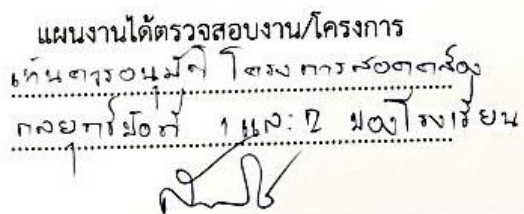 แผนงานได้ตรวจสอบงาน/โครงการ
เห็นควรอนุมัติ โครงการสอดคล้อง
กลยุทธ์ข้อที่ 1 และ 2 ของโรงเรียน